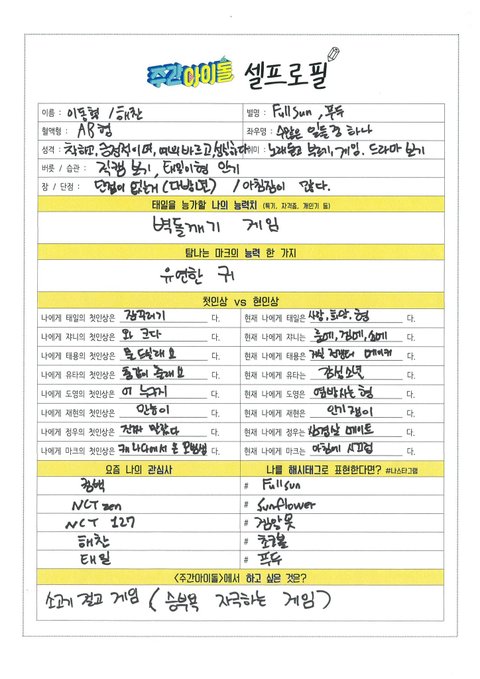 주간아이돌 셀프로필
이름 : 이동혁 / 해찬 별명 : Full Sun, 푸두
혈액형 : AB형 좌우명 : 수많은 일들 중 하나
성격 : 착하고, 긍정적이며, 예의 바르고, 성실하다 취미 : 노래듣고 부르기, 게임, 드라마 보기
버릇 / 습관 : 직캠 보기, 태일이형 안기
장 / 단점 : 단점이 없는게 (다방면) / 아침잠이 많다.
태일을 능가할 나의 능력치 (특기, 자격증, 개인기 등)
벽돌깨기 게임
탐나는 마크의 능력 한 가지
유연한 귀
첫인상 vs 현인상
나에게 태일의 첫인상은 장꾸러기 다. 현재 나에게 태일은 사랑, 희망, 형 다.
나에게 쟈니의 첫인상은 와 크다 다. 현재 나에게 쟈니는 다.
나에게 태용의 첫인상은 다. 현재 나에게 태용은 메이커 다.
나에게 유타의 첫인상은 다. 현재 나에게 유타는 감성소년 다.
나에게 도영의 첫인상은 어 누구지 다. 현재 나에게 도영은 형 다.
나에게 재현의 첫인상은 만능이 다. 현재 나에게 재현은 인기쟁이 다.
나에게 정우의 첫인상은 진짜 말랐다 다. 현재 나에게 정우는 메이트 다.
나에게 마크의 첫인상은 캐나다에서 온 모범생 다. 현재 나에게 마크는 아침에 시끄럼 다.
요즘 나의 관심사 나를 해시태그로 표현한다면? #나스타그램
컴백 # Full sun
NCT zen # Sunflower
NCT 127 # 잠만못
해찬 # 초코볼
태일 # 푸두
<주간아이돌>에서 하고 싶은 것은?
소고기 걸고 게임 ( 승부욕 자극하는 게임 )